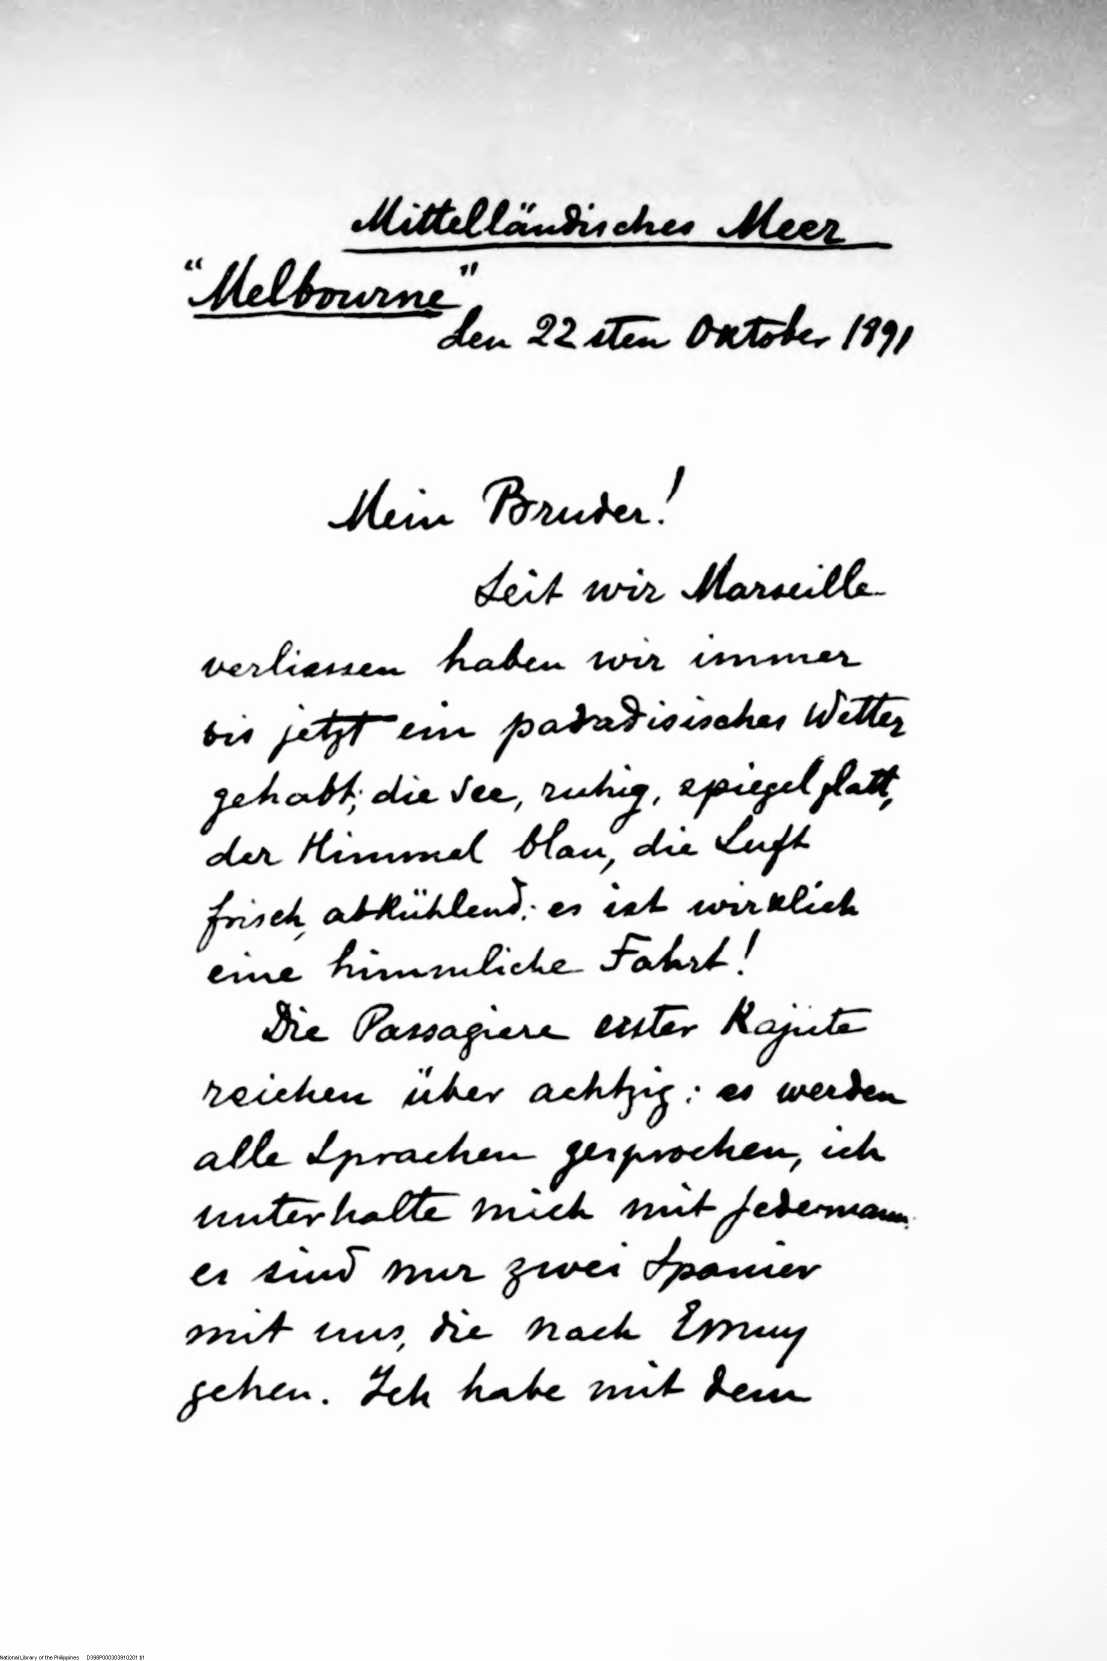 Mittelländisches Meer
"Melbourne"
den 22sten Oktober 1891
Mein Bruder!
Seit wir Marseille
verliessen haben wir immer
bis jetzt ein paradisisches Wetter
gehabt; die See, ruhig, spiegelglatt,
der Himmel blau, die Luft
frisch, abkühlend: es ist wirklich
eine himmliche Fahrt!
Die Passagiere erster Kajüte
reichen über achtzig: es werden
alle Sprachen gesprochen, ich
unterhalte mich mit jedermann.
es sind nur zwei Spanier
mit uns, die nach Emuy
gehen. Ich habe mit dem
National Library of the Philippines D398P000303910201.tif